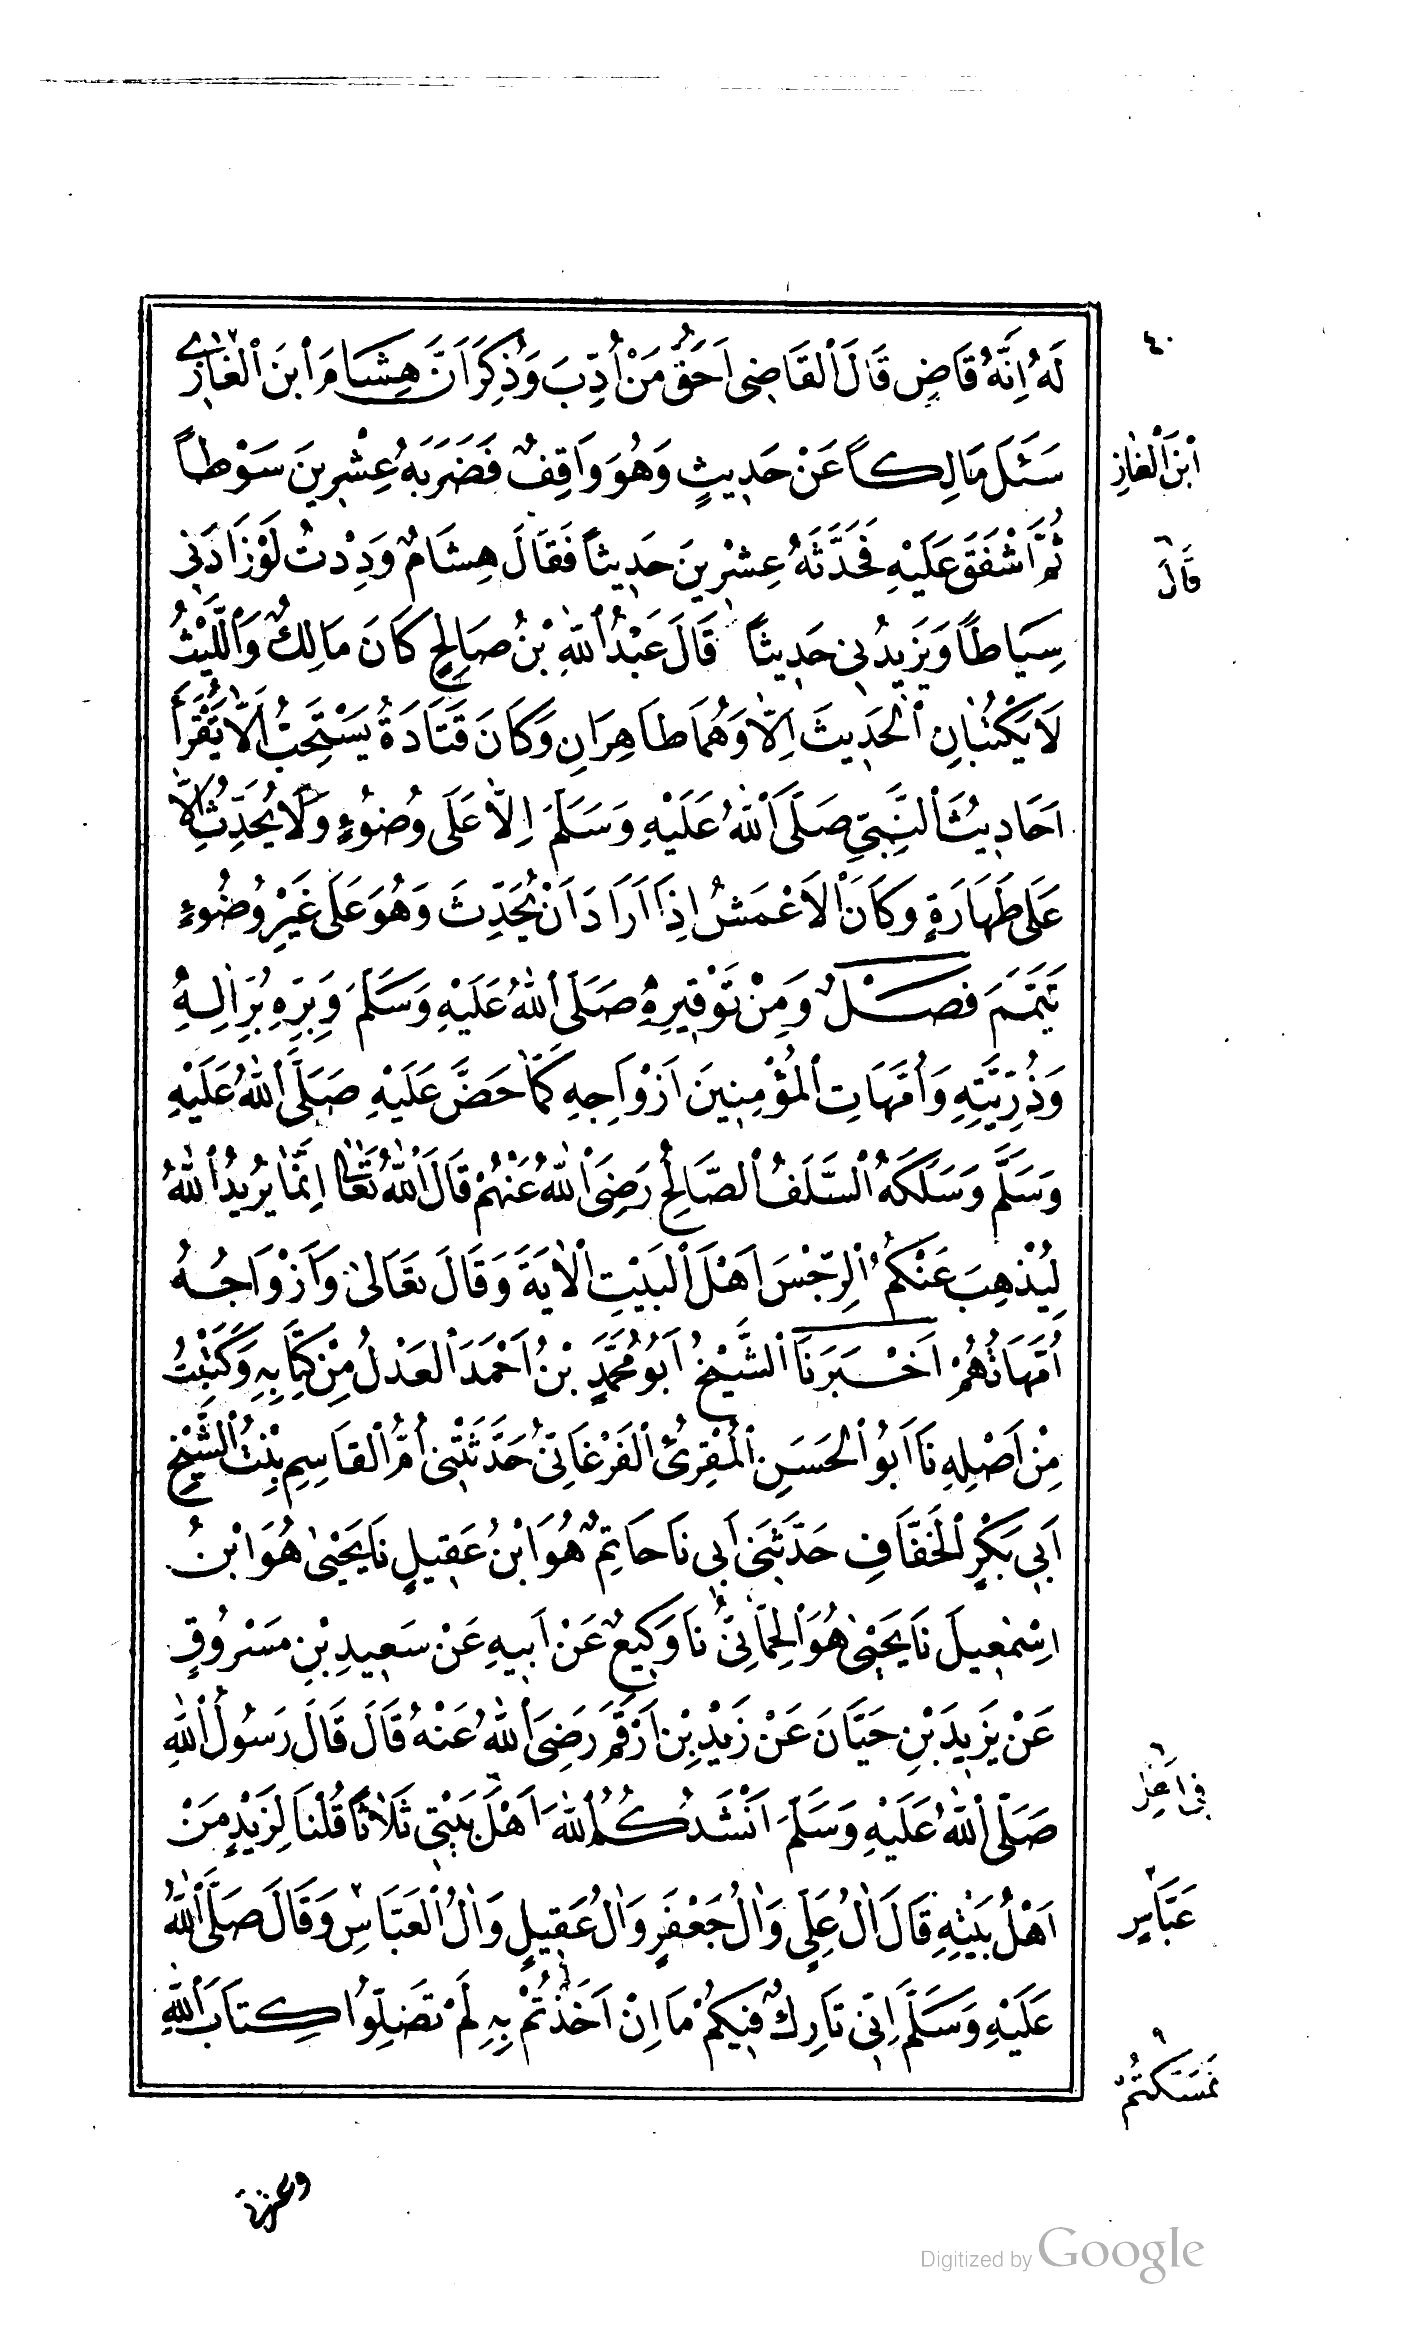 ٤٠
لَهُ اِنَّهُ قَاضٍ قَالَ اَلْقَاضِى اَحَقُّ مَنْ اُدِّبَ وَذُكِرَ اَنَّ هِشَامَ اَبْنَ اَلْغَازِى
سَئَلَ مَالِكاً عَنْ حَدِيثٍ وَهُوَ وَاقِفٌ فَضَرَبَهُ عِشْرِينَ سَوْطاً
ثُمَّ اَشْفَقَ عَلَيْهِ فَحَدَّثَهُ عِشْرِينَ حَدِيثاً فَقَالَ هِشَامٌ وَدِدْتُ لَوْ زَادَنِى
سِيَاطاً وَيَزِيدُنِى حَدِيثاً قَالَ عَبْدُ اللّٰهِ بْنُ صَالِحٍ كَانَ مَالِكٌ وَاللَّيْثُ
لَا يَكْتُبَانِ اَلْحَدِيثَ اِلَّا وَهُمَا طَاهِرَانِ وَكَانَ قَتَادَةُ يَسْتَحِبُّ اَلَّا يَقْرَأَ
اَحَادِيثَ النَّبِىِّ صَلَّى اللّٰهُ عَلَيْهِ وَسَلَّمَ اِلَّا عَلَى وُضُوءٍ وَلَا يُحَدِّثُ اِلَّا
عَلَى طَهَارَةٍ وَكَانَ اَلْاَعْمَشُ اِذَا اَرَادَ اَنْ يُحَدِّثَ وَهُوَ عَلَى غَيْرِ وُضُوءٍ
تَيَمَّمَ فَصْلٌ وَمِنْ تَوْقِيرِهِ صَلَّى اللّٰهُ عَلَيْهِ وَسَلَّمَ وَبِرِّهِ بِرُّ اٰلِهِ
وَذُرِّيَّتِهِ وَاُمَّهَاتِ الْمُؤْمِنِينَ اَزْوَاجِهِ كَمَا حَضَّ عَلَيْهِ صَلَّى اللّٰهُ عَلَيْهِ
وَسَلَّمَ وَسَلَكَهُ السَّلَفُ الصَّالِحُ رَضِىَ اللّٰهُ عَنْهُمْ قَالَ اللّٰهُ تَعَالٰى اِنَّمَا يُرِيدُ اللّٰهُ
لِيُذْهِبَ عَنْكُمُ الرِّجْسَ اَهْلَ الْبَيْتِ الْاٰيَةَ وَقَالَ تَعَالٰى وَاَزْوَاجُهُ
اُمَّهَاتُهُمْ اَخْبَرَنَا الشَّيْخُ اَبُو مُحَمَّدٍ بْنُ اَحْمَدَ الْعَدْلُ مِنْ كِتَابِهِ وَكَتَبْتُ
مِنْ اَصْلِهِ نَا اَبُو الْحَسَنِ الْمُقْرِئُ الْفَرْغَانِىُّ حَدَّثَتْنِى اُمُّ الْقَاسِمِ بِنْتُ الشَّيْخِ
اَبِى بَكْرٍ الْخَفَّافِ حَدَّثَنِى اَبِى نَا حَاتِمٌ هُوَ ابْنُ عَقِيلٍ نَا يَحْيٰى هُوَ ابْنُ
اِسْمٰعِيلَ نَا يَحْيٰى هُوَ الْحِمَّانِىُّ نَا وَكِيعٌ عَنْ اَبِيهِ عَنْ سَعِيدِ بْنِ مَسْرُوقٍ
عَنْ يَزِيدَ بْنِ حَيَّانَ عَنْ زَيْدِ بْنِ اَرْقَمَ رَضِىَ اللّٰهُ عَنْهُ قَالَ قَالَ رَسُولُ اللّٰهِ
صَلَّى اللّٰهُ عَلَيْهِ وَسَلَّمَ اَنْشُدُكُمُ اللّٰهَ اَهْلَ بَيْتِى ثَلَاثاً قُلْنَا لِزَيْدٍ مَنْ
اَهْلُ بَيْتِهِ قَالَ اٰلُ عَلِىٍّ وَاٰلُ جَعْفَرٍ وَاٰلُ عَقِيلٍ وَاٰلُ الْعَبَّاسِ وَقَالَ صَلَّى اللّٰهُ
عَلَيْهِ وَسَلَّمَ اِنِّى تَارِكٌ فِيكُمْ مَا اِنْ اَخَذْتُمْ بِهِ لَمْ تَضِلُّوا كِتَابَ اللّٰهِ
اَبْنَ الْغَازِ
قَالَ
فِى اَهْلِ
عَبَّاسٍ
تَمَسَّكْتُمْ
وعترتى
Digitized by Google